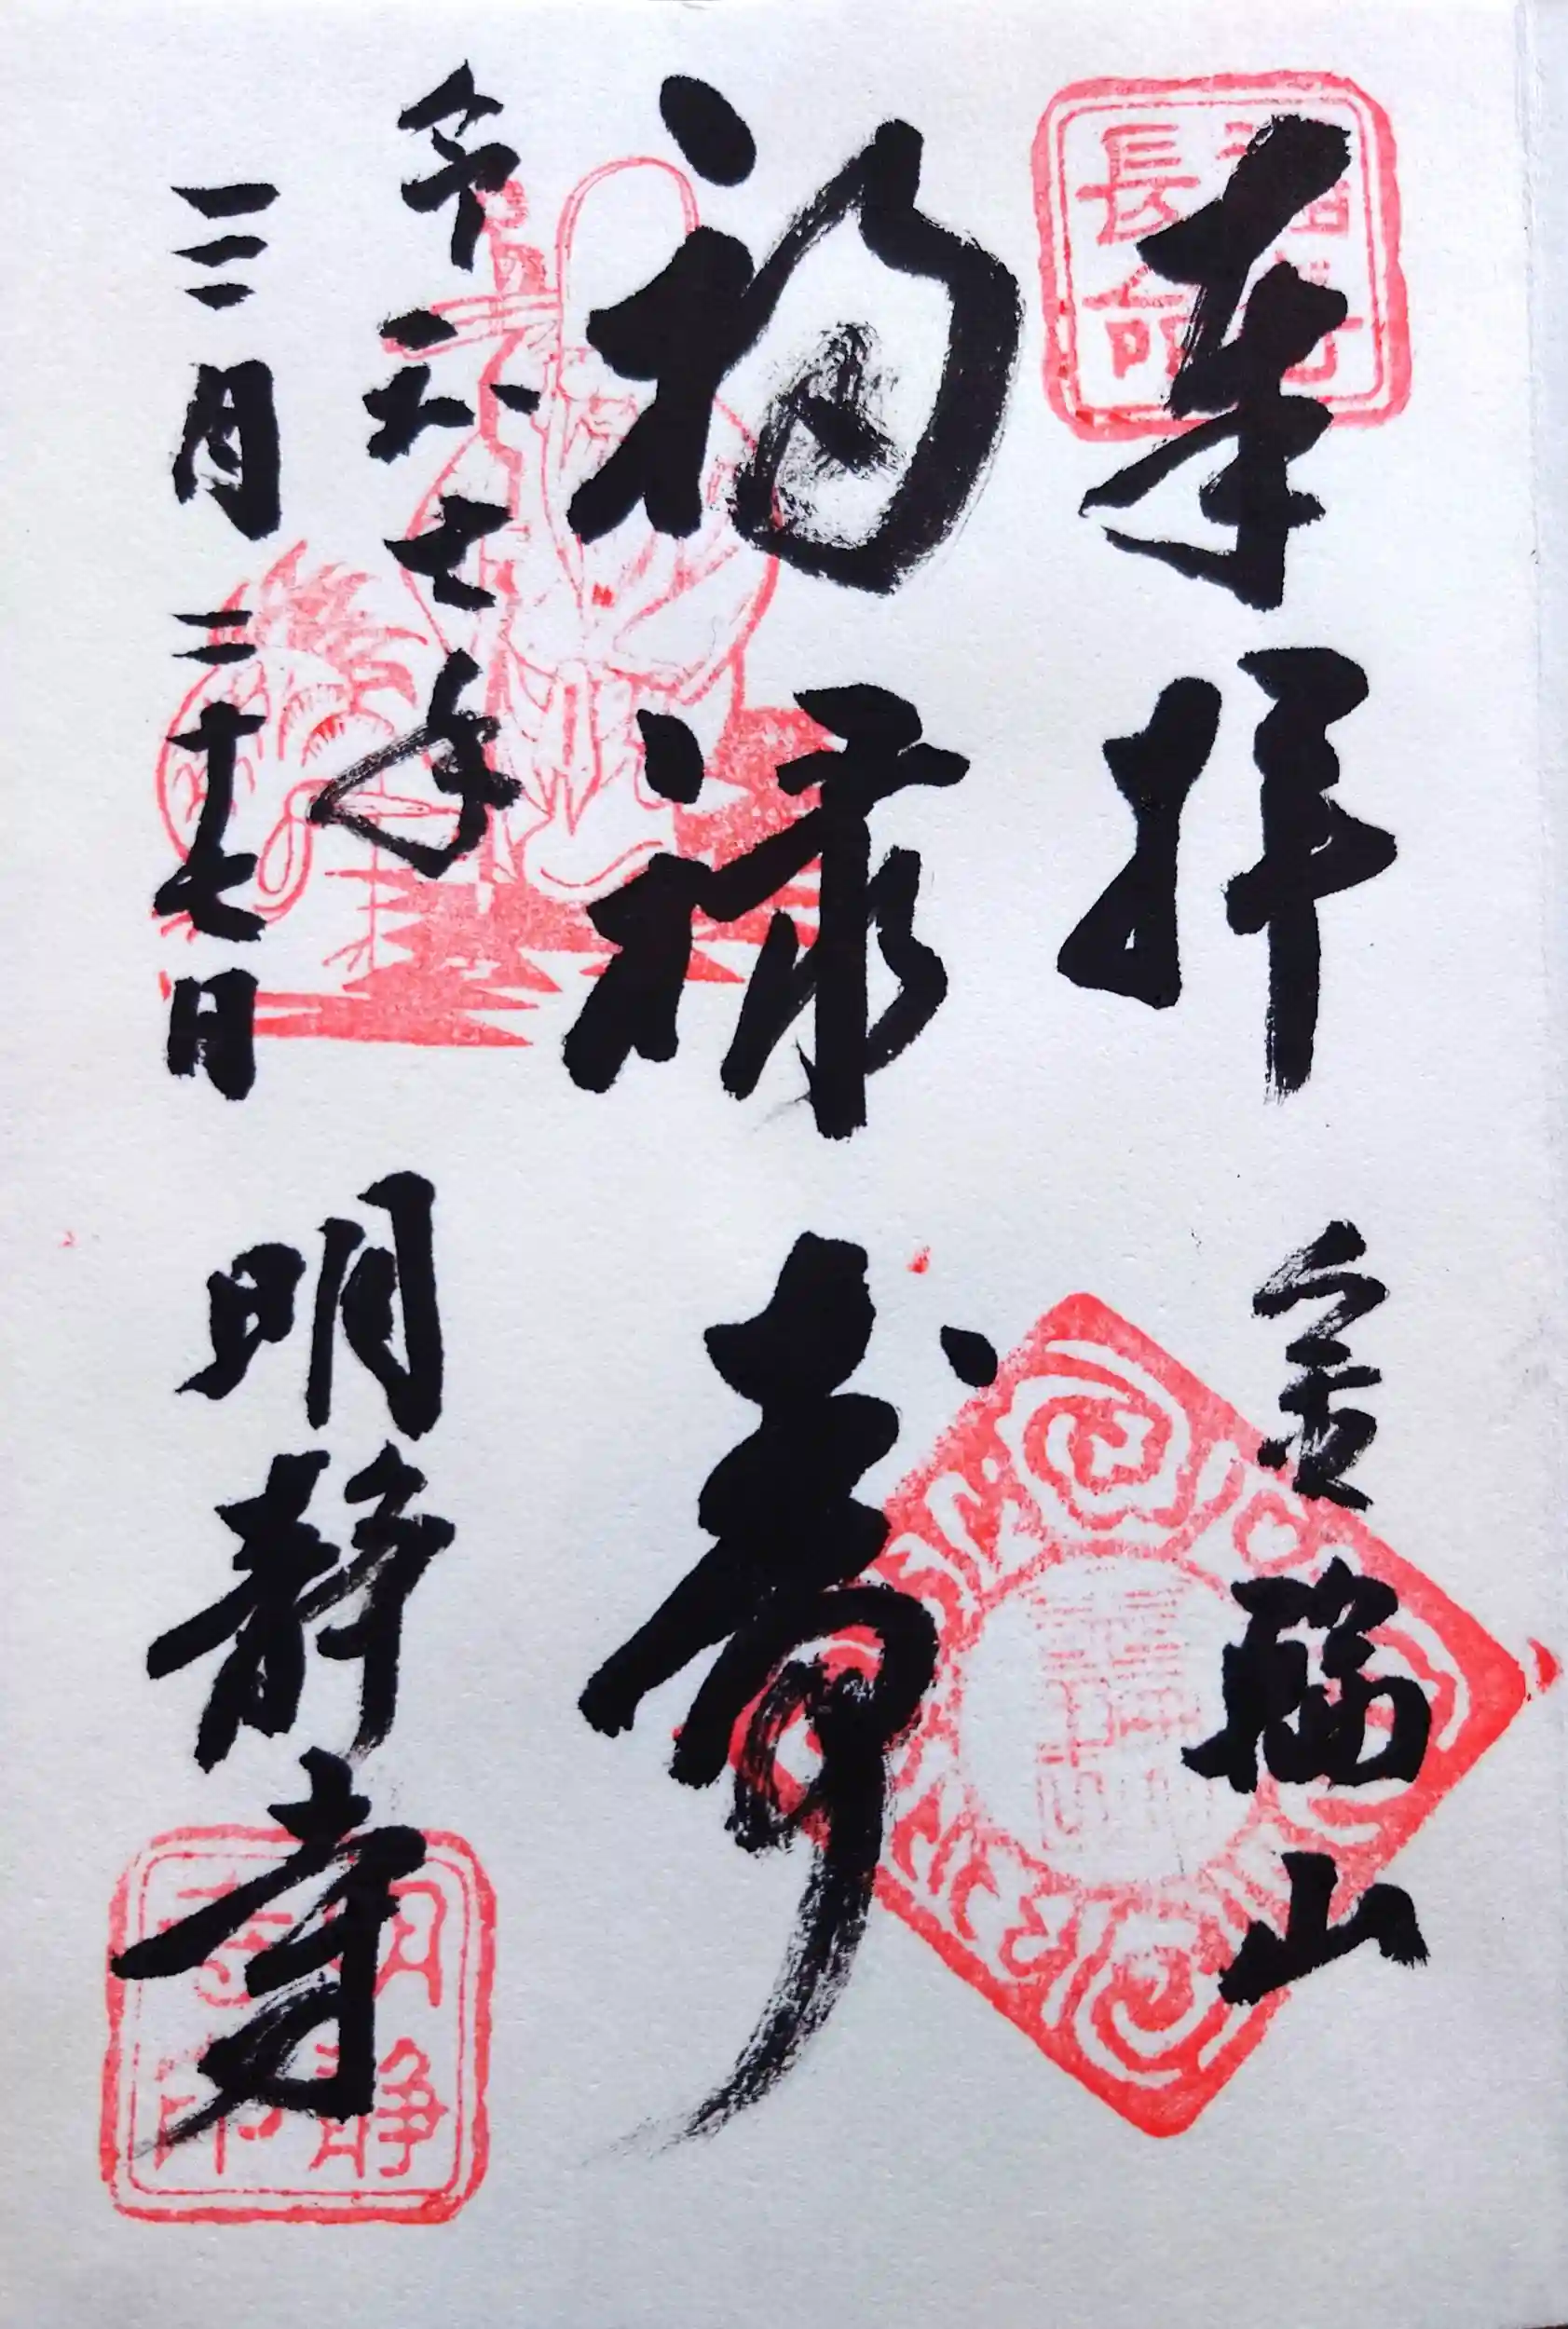 奉拝 金輪山
福禄寿
令和七年
三月二十七日 明静寺
長命
明静寺印